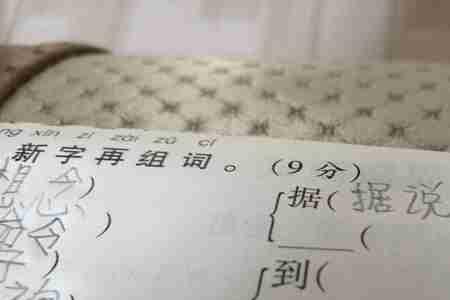 xīn zì zài zǔ cí
新字再组词。(9分)
想念) 据(据说
) (
) 到(